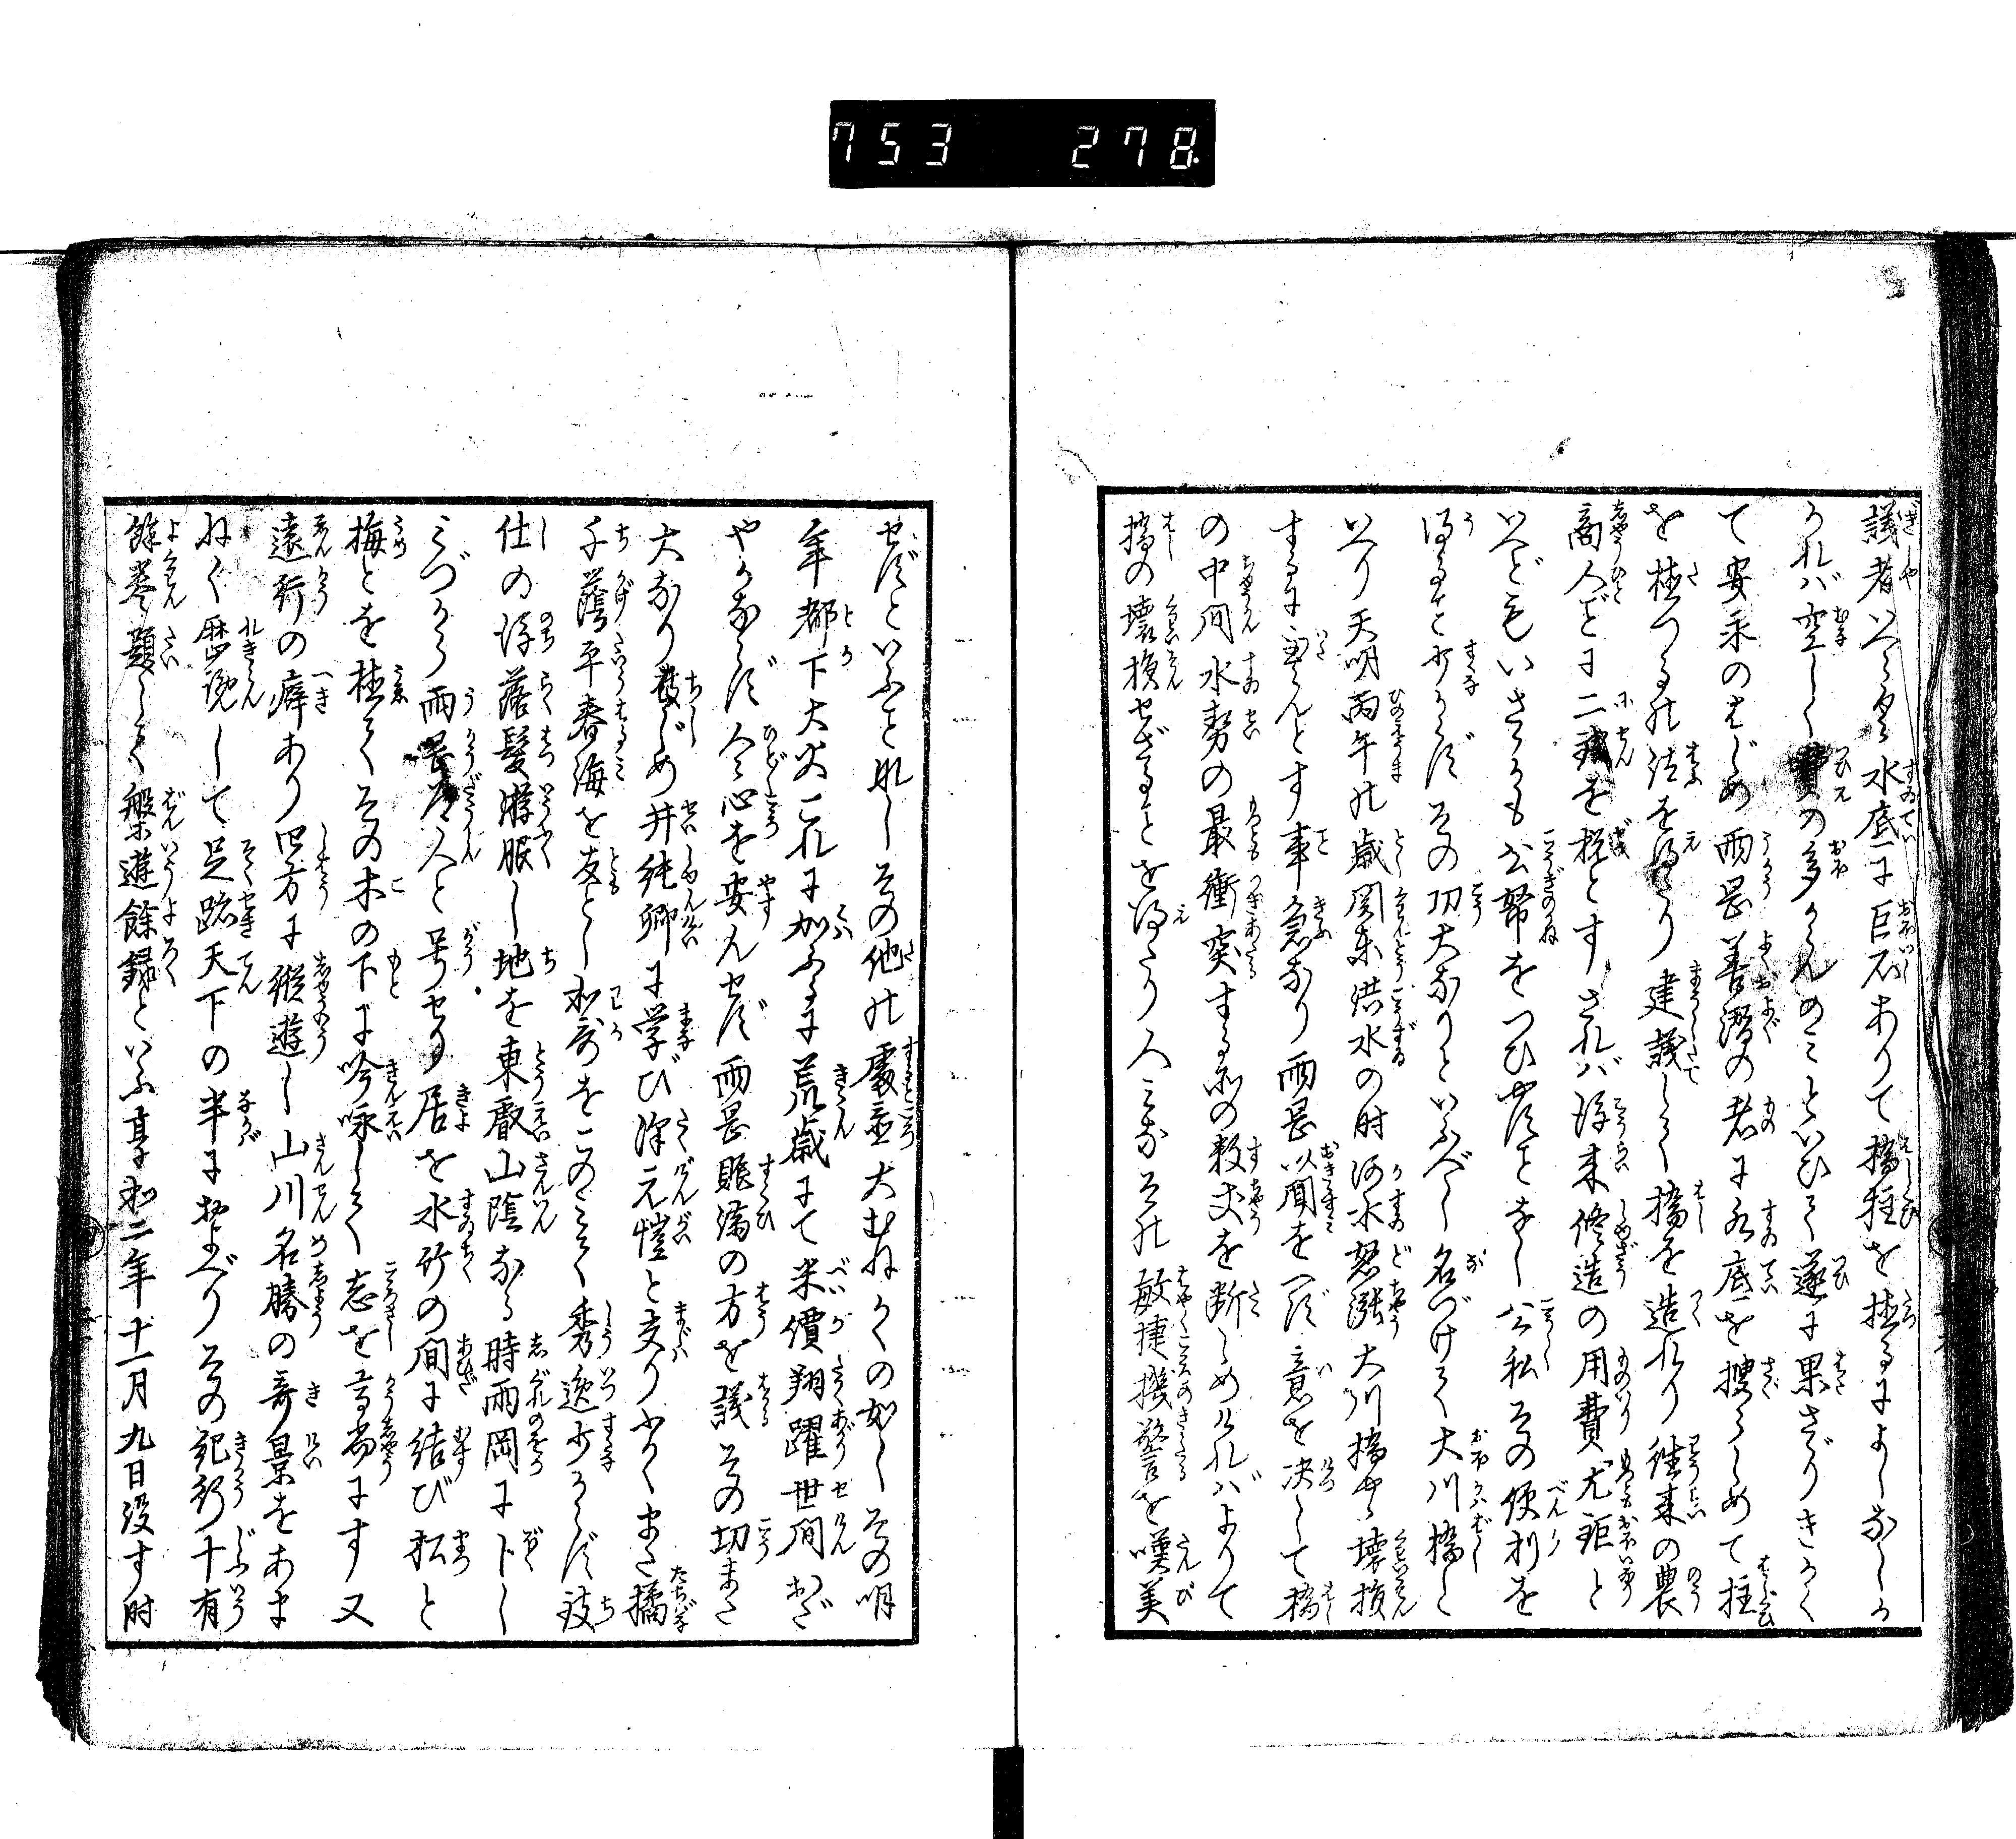 753 278
議者いへらく水底に巨石ありて橋柱を植るによしなしか
かれバ空しく費の多からんのミといひて遂に果さゞりきかく
て安永のはじめ雨岡善潜の者に水底を捜らしめて柱
を植つる の法を得たり建議して橋を造れり往来の農
商人ごとに二銭を税とすされバ後来修造の用費尤鉅と
いへどもいさゝかも公帑をつひやすことなし公私その便利を
得ること少からずその功大なりといふべし名づけて大川橋と
いへり天明丙午の歳関東洪水の時河水怒漲大川橋殆壊損
するに至らんとす事急なり雨岡以聞を 意を决して橋
の中間水勢の最衝突する所の数丈を断しめけれバよりて
橋の壊損せざることを得たり人ミなその敏捷機警を嘆美
せずといふと なしその他の處置大むねかくの如しその明
年都下大火これに加ふるに荒歳にて米價翔躍世間おだ
やかならず人心を安んせず雨岡賑済の方を議その切また
大なり はじめ井純卿に学び澤元愷と交りふかくまた橘
千蔭平春海を友とし和哥をこのミて秀逸少からず致
仕の後薙髪游服し地を東叡山陰なる時雨岡に卜し
ミづから雨岡居人と号せり居を水竹の间に結び松と
梅とを植てその木の下に吟咏して志を高尚にす又
遠行の癖あり四方に縦遊し山川名勝の奇景をあま
ねく歴覧して足跡天下の半に及べりその紀行十有
餘巻題して槃遊餘録といふ享和二年十一月九日没す時